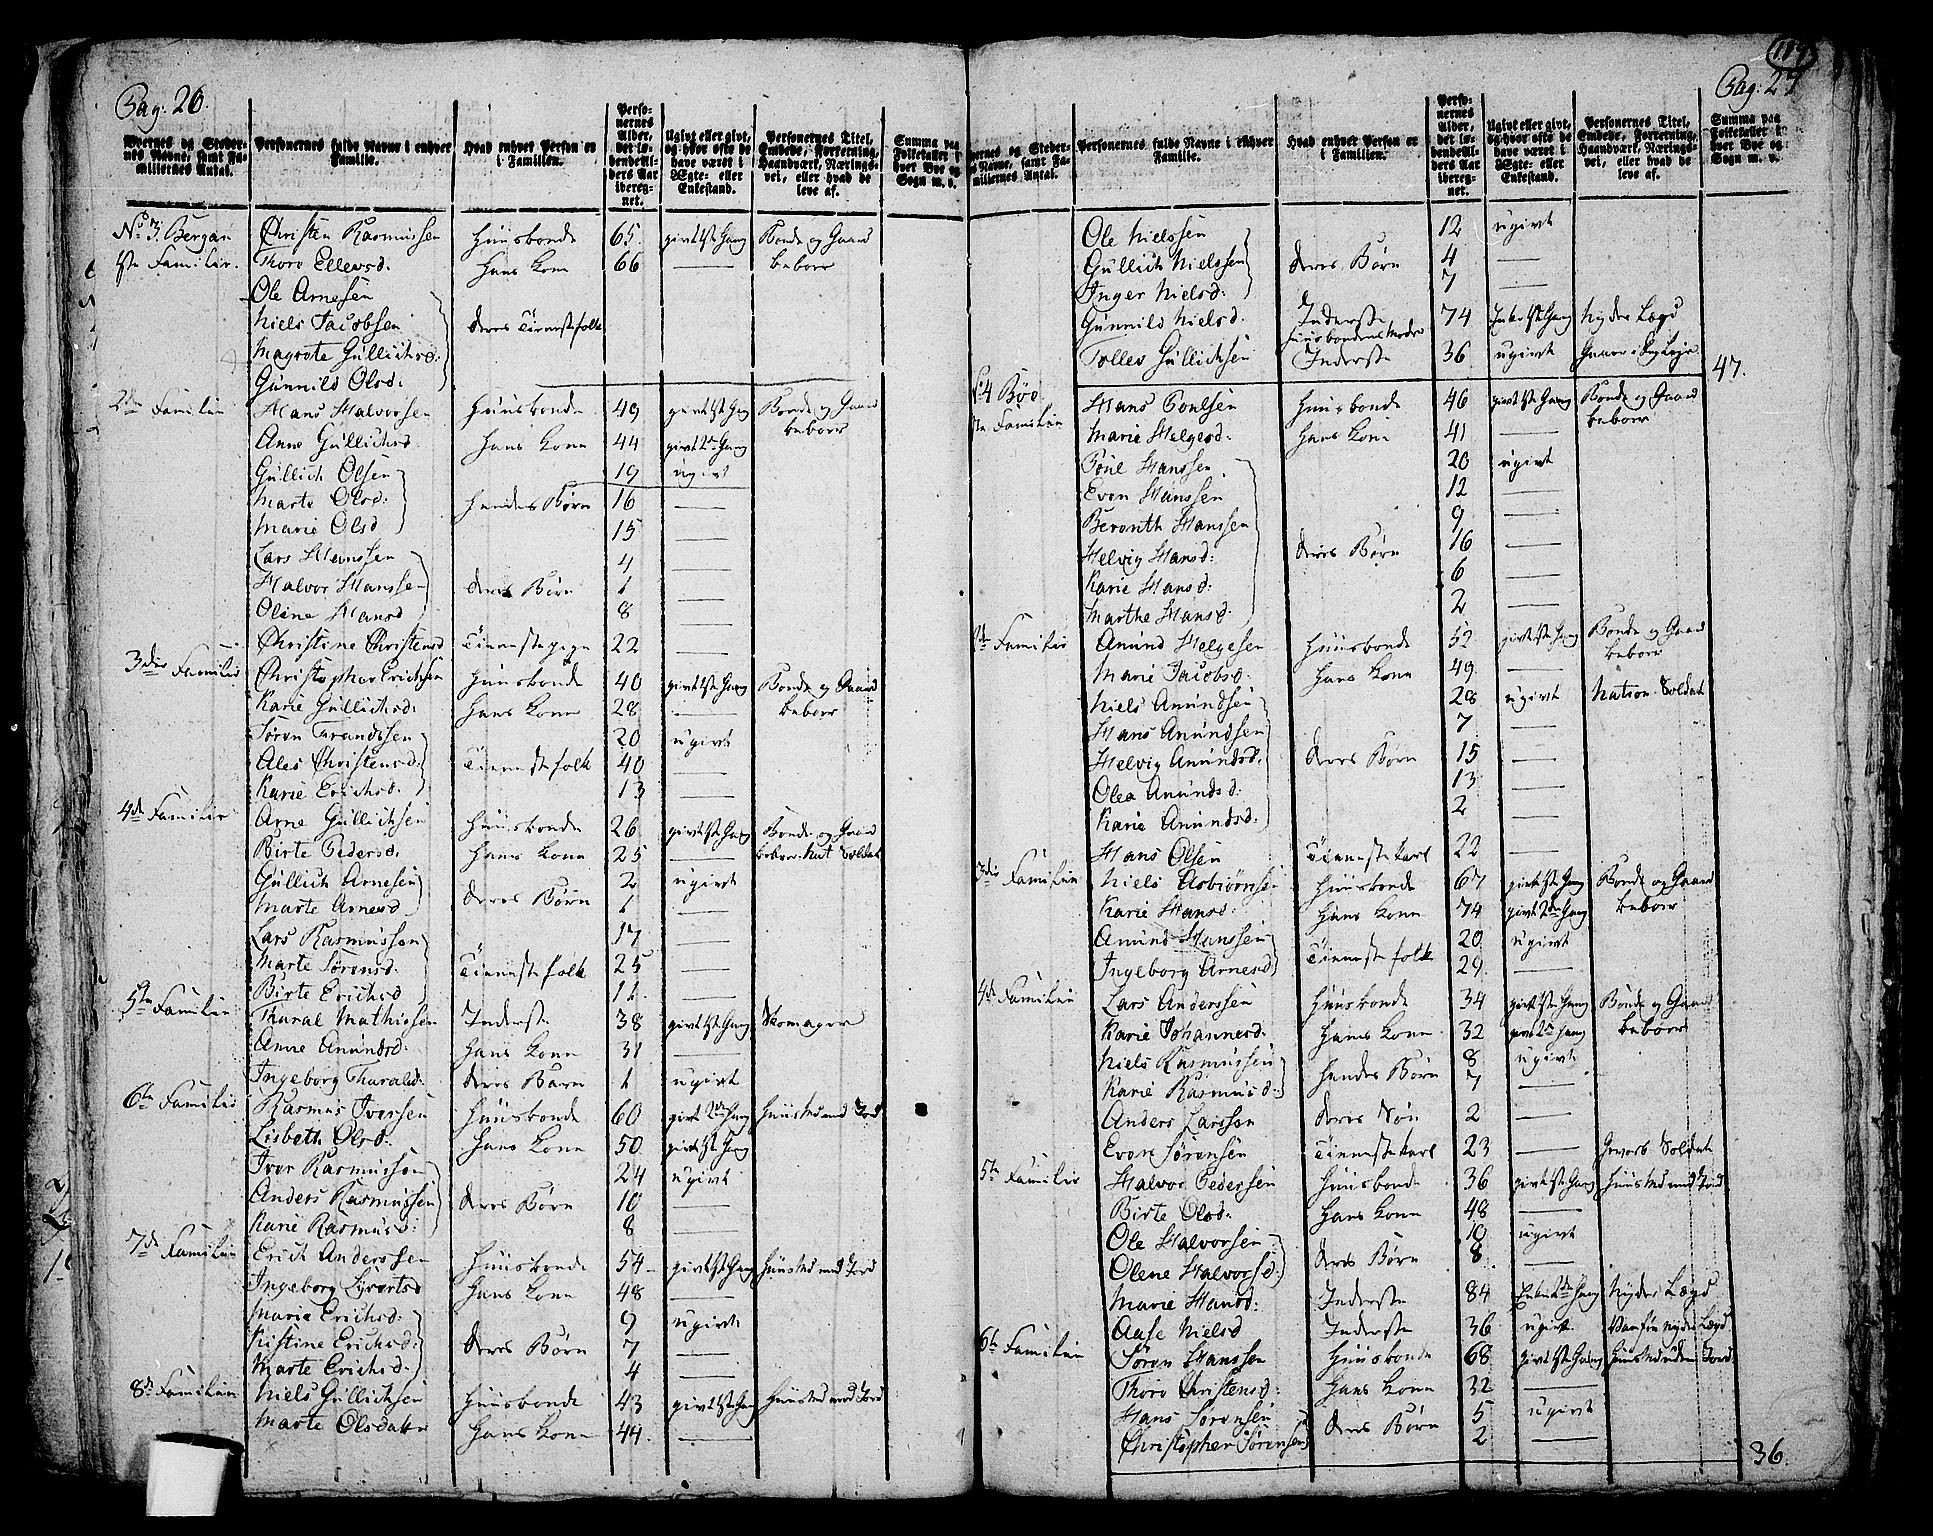 119
Pag: 26.
Gaardernes og Stedernes Navne, samt Familiernes Antal.
Personernes fulde Navne i enhver Familie.
Hvad enhver Person er i Familien.
Personernes Alder, det løbende Alders Aar iberegnet.
Ugivt eller givt, og hvor ofte de have været i Ægte- eller Enkestand.
Personernes Titel, Embede, Forretning, Haandværk, Næringsvei, eller hvad de leve af.
Summa paa Folketallet i hver Bye og Sogn m. v.
No 3. Bergan Christen Rasmussen Huusbonde 65. givt 1ste Gang Bonde og Gaard
1ste Familie. Thore Ellevsd. Hans Kone 66 — beboer
Ole Arnesen
Niels Jacobsen deres Tienestefolk
Magrete Gullichsd:
Gunnild Olsd:
2den Familie Hans Halvorsen Huusbonde 49 givt 1ste Gang Bonde og Gaard
Anne Gullichsd. Hans Kone 44 givt 2den Gang beboer
Gullich Olsen 19 ugivt
Marte Olsd: Hendes Børn 16 —
Marie Olsd 15 —
Lars Hanssen 4 —
Halvor Hanssen deres Børn 1 —
Oline Hansd 8 —
Christine Christensd Tienestepige 22 —
3die Familie Christopher Erichsen Huusbonde 40 givt 1ste Gang Bonde og Gaard
Karie Gullichsd: Hans Kone 28 — beboer
Søren Trandssen 20 ugivt
Ales Christensd: Tienestefolk 40 —
Karie Erichsd. 13 —
4de Familie Arne Gullichsen Huusbonde 26 givt 1ste Gang Bonde og Gaard
Birte Pedersd. Hans Kone 25 — beboer. Nat Soldat
Gullich Arnesen deres Børn 2 ugivt
Marte Arnesd 1 —
Lars Rasmussen 17 —
Marte Sørensd. Tienestefolk 25 —
Birte Erichsd 11. —
5te Familie Thural Mathiesen Inderste 38 givt 1ste Gang Skomager
Anne Amundsd. Hans Kone 31 —
Ingeborg Thuralsd: deres Barn 1 ugivt
6te Familie Rasmus Iversen Huusbonde 60 givt 2den Gang Huusmand med Jord
Lisbeth Olsd. Hans Kone 50 givt 1ste Gang
Iver Rasmussen 24 ugivt
Anders Rasmussen deres Børn 10 —
Karie Rasmusd: 8 —
7de Familie Erich Anderssen Huusbonde 54 givt 1ste Gang Huusmand med Jord
Ingeborg Syvertsd Hans Kone 48 —
Marie Erichsd: 9 ugivt
Kistine Erichsd: deres Børn 7 —
Marte Erichsd: 4 —
8de Familie Niels Gullichsen Huusbonde 43 givt 1ste Gang Huusmand med Jord
Marte Olsdatter Hans Kone 44. —
Pag: 27
Gaardernes og Stedernes Navne, samt Familiernes Antal.
Personernes fulde Navne i enhver Familie.
Hvad enhver Person er i Familien.
Personernes Alder, det løbende Alders Aar iberegnet.
Ugivt eller givt, og hvor ofte de have været i Ægte- eller Enkestand.
Personernes Titel, Embede, Forretning, Haandværk, Næringsvei, eller hvad de leve af.
Summa paa Folketallet i hver Bye og Sogn m. v.
Ole Nielssen 12 ugivt
Gullich Nielssen deres Børn 4 —
Inger Nielsd: 7 —
Gunnild Nielsd. Inderste Huusbondens Moder 74 Enke 1ste Gang Nyder Lægd
Tollev Gullichsen Inderste 36 ugivt
47.
No 4 Bøe Hans Poulsen Huusbonde 46 givt 1ste Gang Bonde og Gaard
1ste Familie Marie Helgesd: Hans Kone 41 — beboer
Poul Hanssen 20 ugivt
Even Hanssen 12 —
Beronth Hanssen 9 —
Helvig Hansd: deres Børn 16 —
Karie Hansd: 6 —
Marthe Hansd: 2 —
2de Familie Amund Helgesen Huusbonde 52 givt 1ste Gang Bonde og Gaard
Marie Jacobsd: Hans Kone 49 — beboer
Niels Amundsen 28 ugivt Nation: Soldat
Hans Amundsen 7 —
Helvig Amundsd. deres Børn 15 —
Olea Amundsd: 13 —
Karie Amundsd: 2 —
Hans Olsen Tienestekarl 22 —
3die Familie Niels Asbiørnsen Huusbonde 67 givt 1ste Gang Bonde og Gaard
Karie Hansd: Hans Kone 74 givt 2den Gang beboer
Amund Hanssen Tienestefolk 20 ugivt
Ingeborg Arnesd 29 —
4de Familie Lars Anderssen Huusbonde 34 givt 1ste Gang Bonde og Gaard
Karie Johannesd. Hans Kone 32 givt 2den Gang beboer
Niels Rasmussen Hendes Børn 8 ugivt
Karie Rasmusd: 7 —
Anders Larssen deres Søn 2 —
Even Sørensen Tienestekarl 23 — Gevorb Soldat
5te Familie Halvor Pedersen Huusbonde 36 givt 1ste Gang Huusmand med Jord
Birte Olsd: Hans Kone 48 —
Ole Halvorsen deres Børn 10 ugivt
Olene Halvorsd: 8 —
Marie Hansd: Inderste 84 Enke 2den Gang Nyder Lægd
Aase Nielsd Inderste 36 ugivt Vanfør nyder Lægd
6te Familie Søren Hanssen Huusbonde 68 givt 1ste Gang Huusmand uden Jord
Thore Christensd: Hans Kone 32 —
Hans Sørensen deres Børn 5 ugivt
Christopher Sørensen 2 —
36.